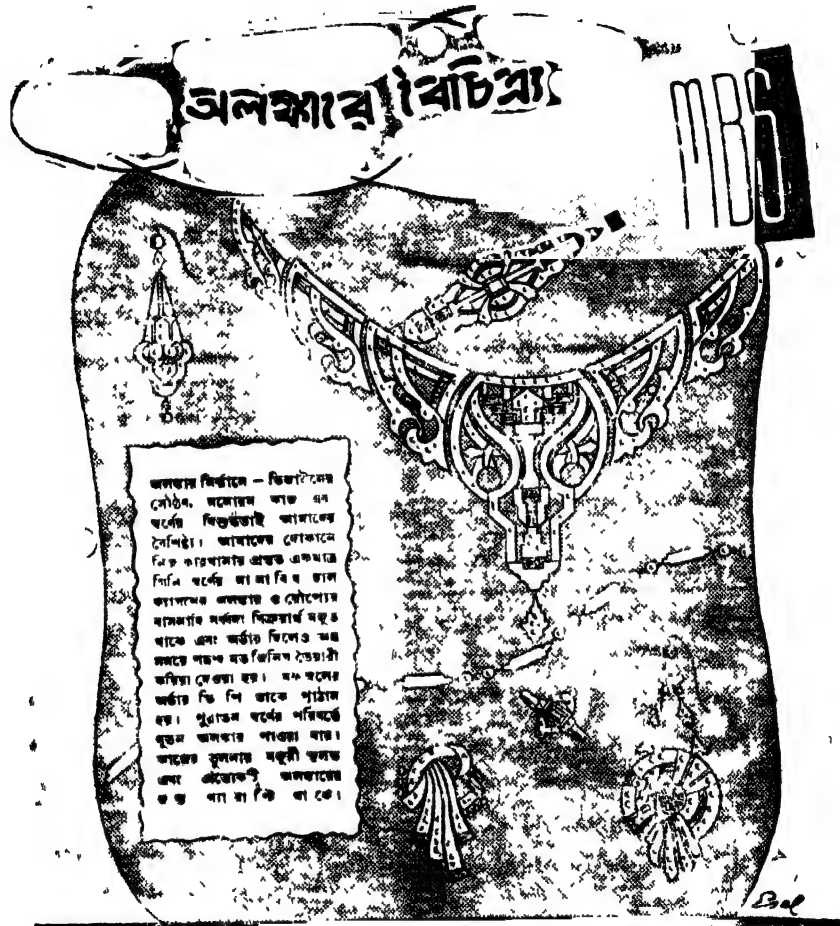 অলঙ্কারে বৈচিত্র্য
MBS
অলঙ্কার নির্ম্মাণে – ডিজাইনের
সৌষ্ঠব, মনোরম কাজ এবং
স্বর্ণের বিশুদ্ধতাই আমাদের
বৈশিষ্ট্য। আমাদের দোকানে
নিজ কারখানায় প্রস্তুত একমাত্র
গিনি স্বর্ণের নানাবিধ হাল
ফ্যাসানের অলঙ্কার ও রৌপ্যের
বাসনাদি সর্ব্বদা বিক্রয়ার্থ মজুত
থাকে এবং অর্ডার দিলেও অল্প
সময়ে পছন্দ মত জিনিষ তৈয়ারী
করিয়া দেওয়া হয়। মফঃস্বলের
অর্ডার ভি পি ডাকে পাঠান
হয়। পুরাতন স্বর্ণের পরিবর্ত্তে
নূতন অলঙ্কার পাওয়া যায়।
কাজের তুলনায় মজুরী সুলভ
এবং প্রত্যেকটী অলঙ্কারের
জন্য গ্যারান্টি থাকে।